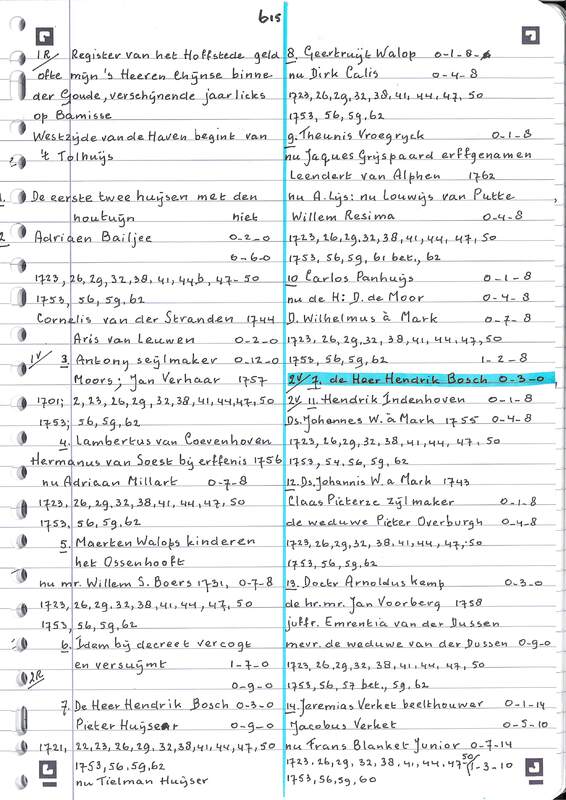 615
1R/ Register van het Hoffstede geld
ofte mijn 's Heeren Chijnse binne
der Goude, verschijnende jaarlicks
op Bamisse
Westzijde van de Haven begint van
't Tolhuijs
1. De eerste twee huijsen met den
houtuijn niet
2 Adriaen Bailjee 0-2-0
6-6-0
1723, 26, 29, 32, 38, 41, 44, 47-50
1753, 56, 59, 62
Cornelis van der Stranden 1744
Aris van Leuwen 0-2-0
1V/ 3. Antony seijlmaker 0-12-0
Moors; Jan Verhaar 1757
1701; 2, 23, 26, 29, 32, 38, 41, 44, 47, 50
1753; 56, 59, 62
4. Lambertus van Coevenhoven
Hermanus van Soest bij erffenis 1756
nu Adriaan Millart 0-7-8
1723, 26, 29, 32, 38, 41, 44, 47, 50
1753, 56, 59, 62
5. Maerten Walops kinderen
het Ossenhooft
nu mr. Willem S. Boers 1731, 0-7-8
1723, 26, 29, 32, 38, 41, 44, 47, 50
1753, 56, 59, 62
6. Idem bij decreet vercogt
en versuijmt 1-7-0
0-9-0
2R/
7. De Heer Hendrik Bosch 0-3-0
Pieter Huijser 0-9-0
1721, 22, 23, 26, 29, 32, 38, 41, 44, 47, 50
1753, 56, 59, 62
nu Tielman Huijser
8. Geertruijt Walop 0-1-8
nu Dirk Calis 0-4-8
1723, 26, 29, 32, 38, 41, 44, 47, 50
1753, 56, 59, 62
9. Theunis Vroegryck 0-1-8
nu Jaques Grijspaard erffgenamen
Leendert van Alphen 1762
nu A. Lijs: nu Louwijs van Putte
Willem Resima 0-4-8
1723, 26, 29, 32, 38, 41, 44, 47, 50
1753, 56, 59, 61 bet., 62
10 Carlos Panhuijs 0-1-8
nu de H: D. de Moor 0-4-8
D. Wilhelmus à Mark 0-7-8
1723, 26, 29, 32, 38, 41, 44, 47, 50
1753, 56, 59, 62 1-2-8
2V/ 7. de Heer Hendrik Bosch 0-3-0
2V/ 11. Hendrik Indenhoven 0-1-8
Ds. Johannes W. à Mark 1755 0-4-8
1723, 26, 29, 32, 38, 41, 44, 47, 50
1753, 54, 56, 59, 62
12. Ds. Johannis W. a Mark 1743
Claas Pieterze Zijlmaker 0-1-8
de weduwe Pieter Overburgh 0-4-8
1723, 26, 29, 32, 38, 41, 44, 47, 50
1753, 56, 59, 62
13. Doctr Arnoldus Kemp 0-3-0
de hr. mr. Jan Voorberg 1758
juffr. Emrentia van der Dussen
mevr. de weduwe van der Dussen 0-9-0
1723, 26, 29, 32, 38, 41, 44, 47, 50
1753, 56, 57 bet., 59, 62
14. Jeremias Verket beelthouwer 0-1-14
Jacobus Verket 0-5-10
nu Frans Blanket Junior 0-7-14
1723, 26, 29, 32, 38, 41, 44, 47, 50/ 1-3-10
1753, 56, 59, 60